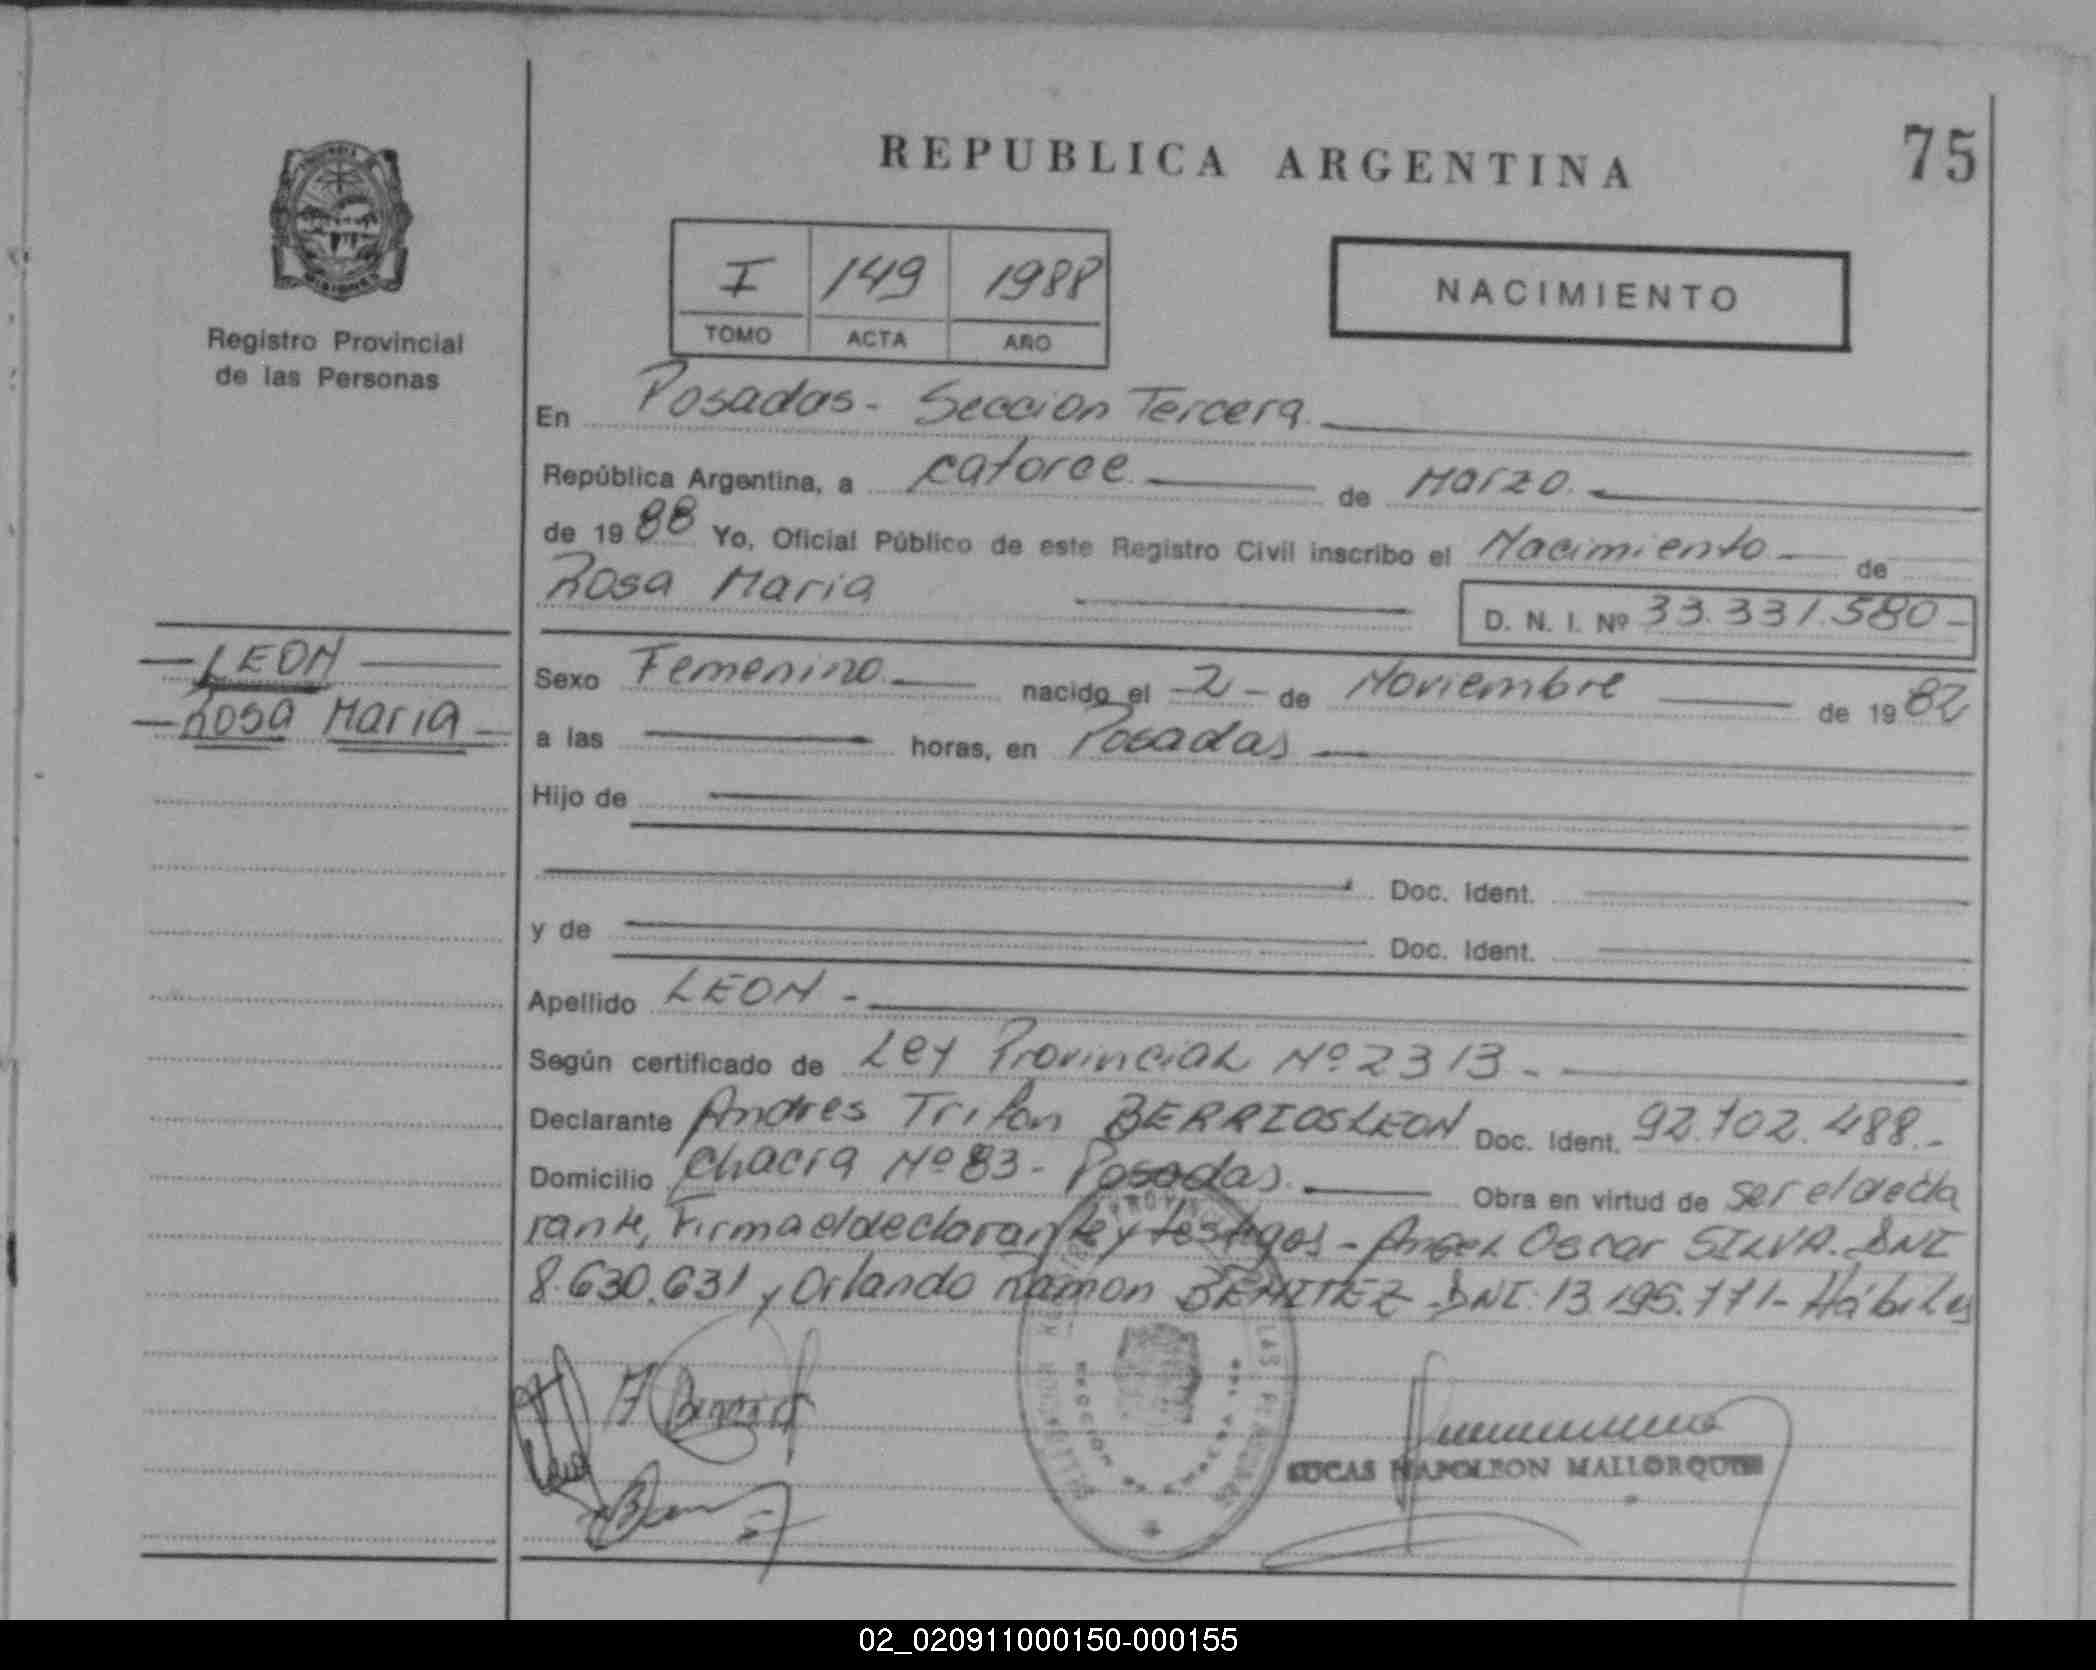 REPUBLICA ARGENTINA
75
Registro Provincial
de las Personas
I 149 1988
TOMO ACTA AÑO
NACIMIENTO
En Posadas - Seccion Tercera
República Argentina, a catorce de Marzo
de 1988 Yo, Oficial Público de este Registro Civil inscribo el Nacimiento de
Rosa Maria
D. N. I. Nº 33.331.580-
LEON
Rosa Maria
Sexo Femenino nacido el -2- de Noviembre de 1982
a las horas, en Posadas
Hijo de
Doc. Ident.
y de Doc. Ident.
Apellido LEON -
Según certificado de Ley Provincial Nº 2313 -
Declarante Andres Trifon BERRIOS LEON Doc. Ident. 92.702.488.-
Domicilio Chacra Nº 83 - Posadas. Obra en virtud de ser el decla
rante, Firma el declarante y testigos - Angel Oscar SILVA. DNI
8.630.631 y Orlando Ramon BENITEZ DNI: 13.195.771- Hábiles
LUCAS NAPOLEON MALLORQUIN
02_020911000150-000155